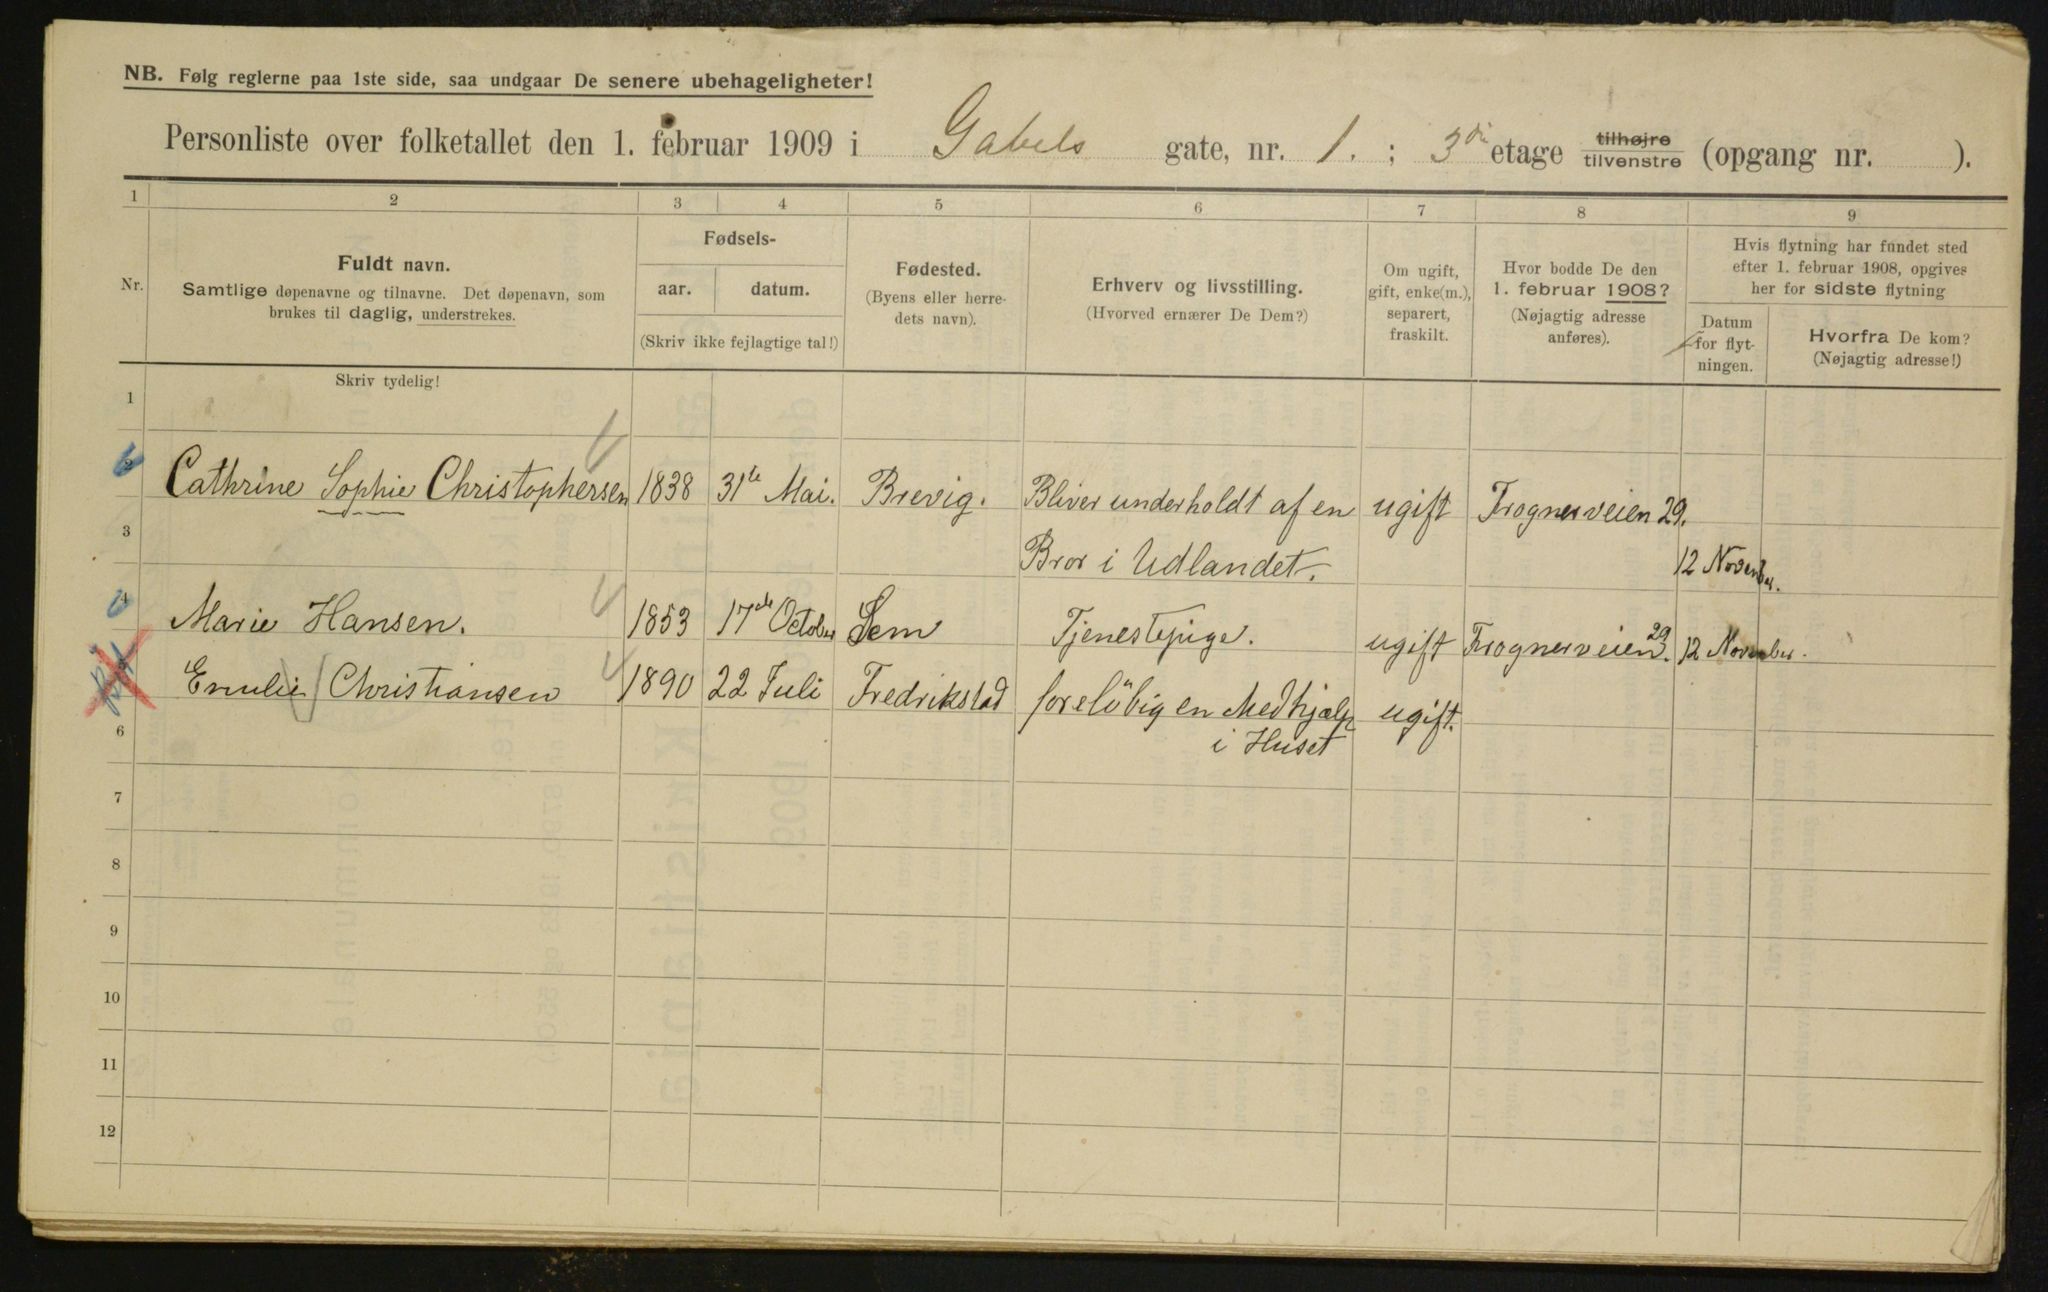 NB. Følg reglerne paa 1ste side, saa undgaar De senere ubehageligheter!
Personliste over folketallet den 1. februar 1909 i Gabels gate, nr. 1. ; 3die etage tilhøjre tilvenstre (opgang nr. ).
1 2 3 4 5 6 7 8 9
Nr.
Fuldt navn.
Samtlige døpenavne og tilnavne. Det døpenavn, som
brukes til daglig, understrekes.
Fødsels-
aar. datum.
(Skriv ikke fejlagtige tal!)
Fødested.
(Byens eller herre-
dets navn).
Erhverv og livsstilling.
(Hvorved ernærer De Dem?)
Om ugift,
gift, enke(m.),
separert,
fraskilt.
Hvor bodde De den
1. februar 1908?
(Nøjagtig adresse
anføres).
Hvis flytning har fundet sted
efter 1. februar 1908, opgives
her for sidste flytning
Datum
for flyt-
ningen.
Hvorfra De kom?
(Nøjagtig adresse!)
Skriv tydelig!
1
2 Cathrine Sophie Christophersen 1838 31te Mai. Brevig. Bliver underholdt af en ugift Frognerveien 29.
3 Bror i Udlandet. 12 November.
4 Marie Hansen. 1853 17de October Sem Tjenestepige. ugift Frognerveien 29. 12 November.
Emilie Christiansen 1890 22 Juli Fredrikstad foreløbig en Medhjælp ugift.
6 i Huset
7
8
9
10
11
12